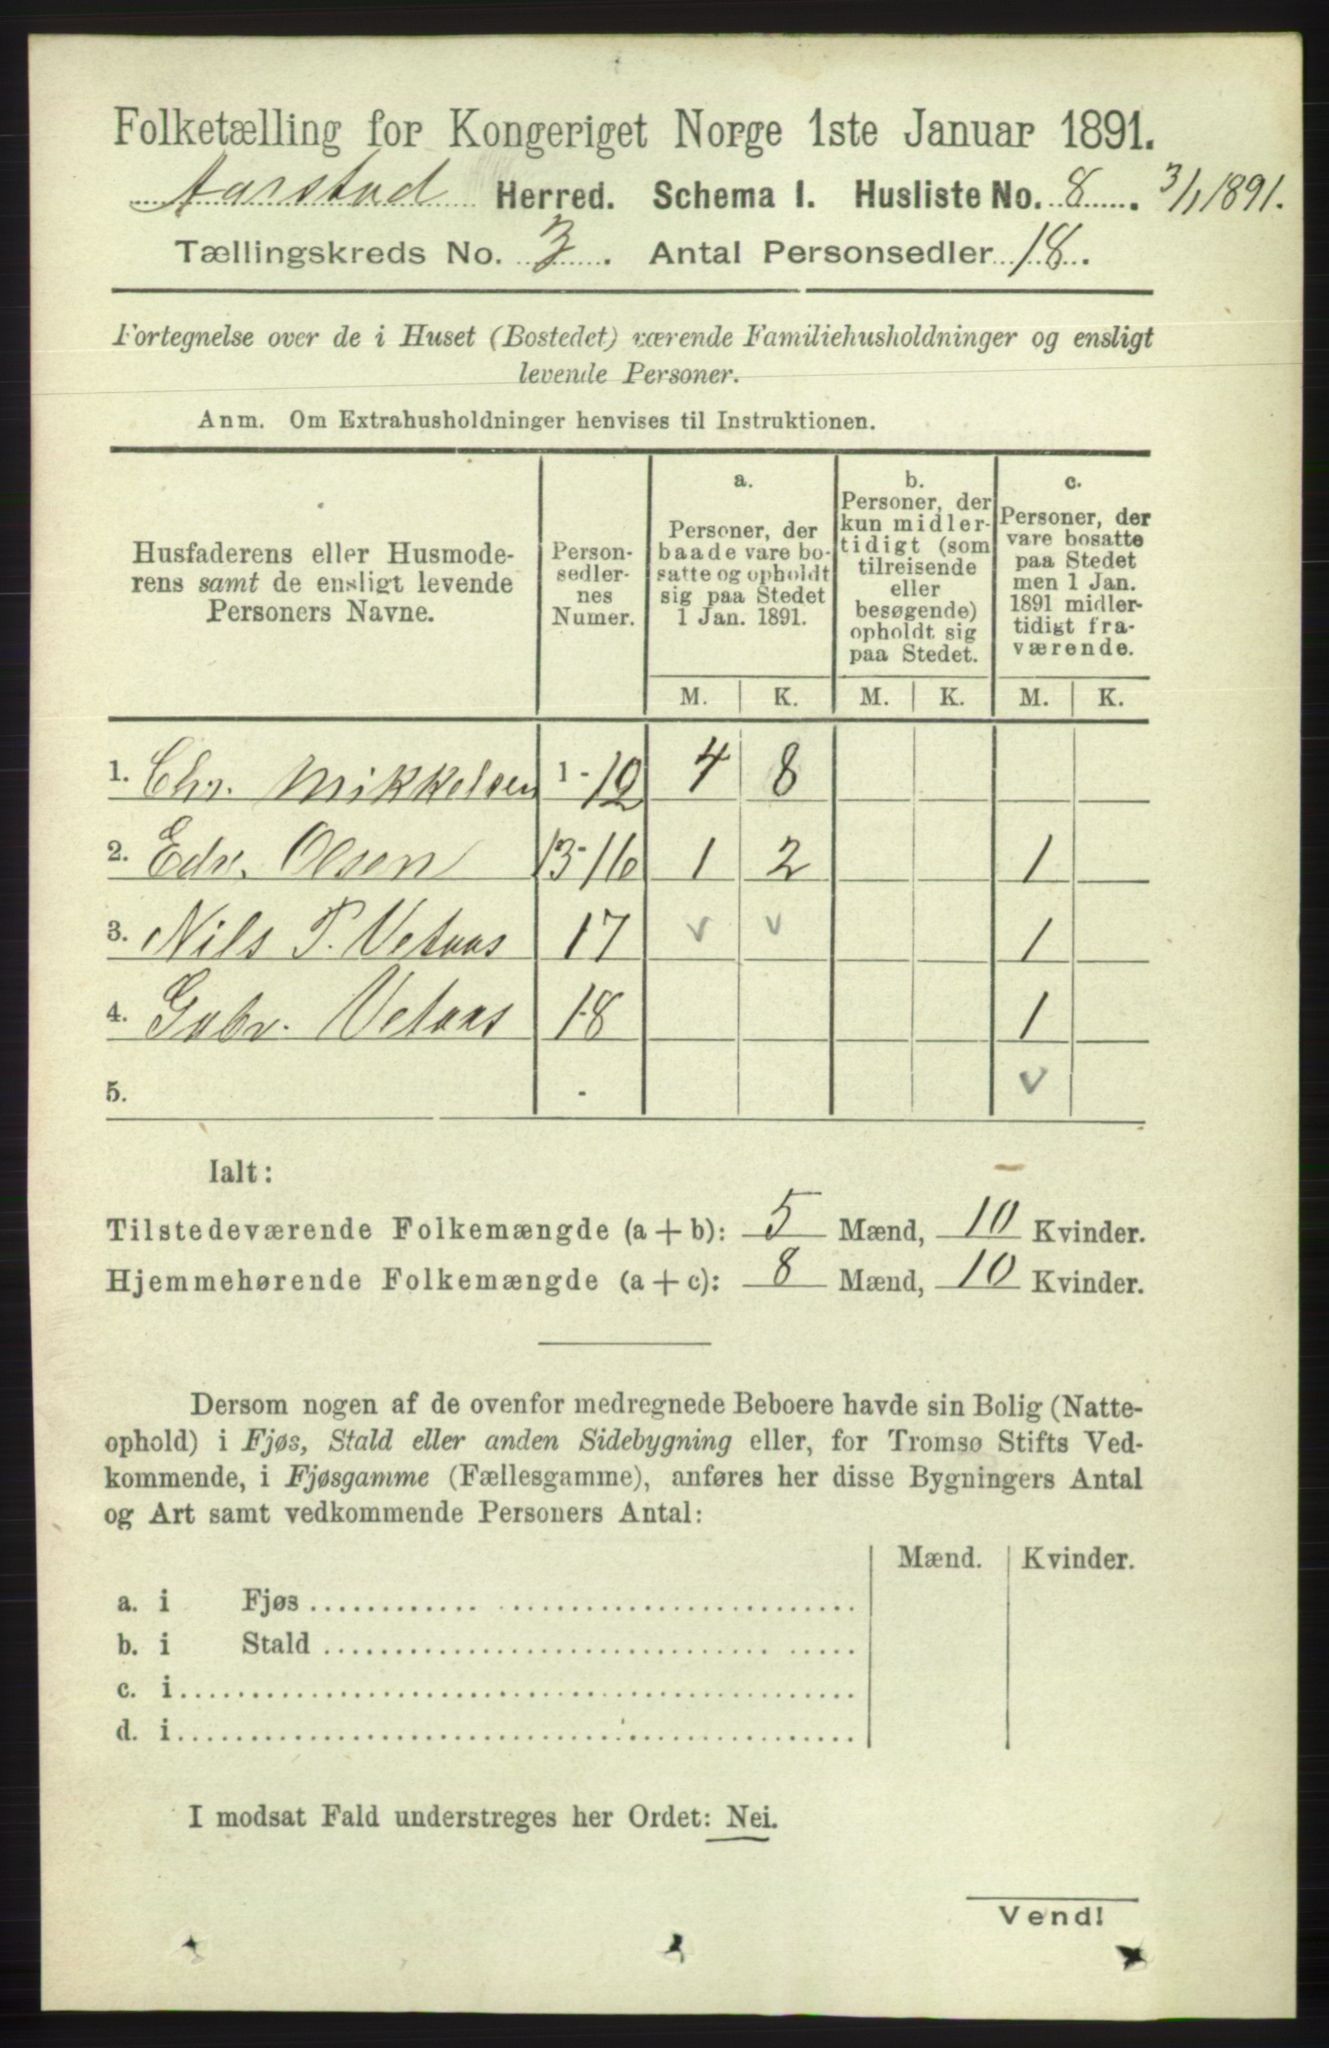 Folketælling for Kongeriget Norge 1ste Januar 1891.
Aarstad Herred. Schema I. Husliste No. 8. 3/1 1891.
Tællingskreds No. 3. Antal Personsedler 18.
Fortegnelse over de i Huset (Bostedet) værende Familiehusholdninger og ensligt
levende Personer.
Anm. Om Extrahusholdninger henvises til Instruktionen.
Husfaderens eller Husmode-
rens samt de ensligt levende
Personers Navne.
Person-
sedler-
nes
Numer.
a.
Personer, der
baade vare bo-
satte og opholdt
sig paa Stedet
1 Jan. 1891.
b.
Personer, der
kun midler-
tidigt (som
tilreisende
eller
besøgende)
opholdt sig
paa Stedet.
c.
Personer, der
vare bosatte
paa Stedet
men 1 Jan.
1891 midler-
tidigt fra-
værende.
M. K. M. K. M. K.
1. Chr. Mikkelsen 1-12 4 8
2. Edv. Olsen 13-16 1 2 1
3. Nils P. Vetaas 17 v v 1
4. Gabr. Vetaas 18 1
5. - v
Ialt:
Tilstedeværende Folkemængde (a + b): 5 Mænd, 10 Kvinder.
Hjemmehørende Folkemængde (a + c): 8 Mænd, 10 Kvinder.
Dersom nogen af de ovenfor medregnede Beboere havde sin Bolig (Natte-
ophold) i Fjøs, Stald eller anden Sidebygning eller, for Tromsø Stifts Ved-
kommende, i Fjøsgamme (Fællesgamme), anføres her disse Bygningers Antal
og Art samt vedkommende Personers Antal:
Mænd. Kvinder.
a. i Fjøs
b. i Stald
c. i
d. i
I modsat Fald understreges her Ordet: Nei.
Vend!